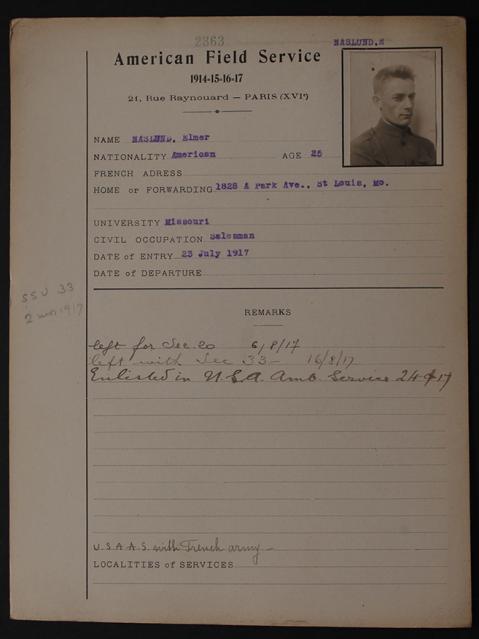 2363
NASLUND,E
American Field Service
1914-15-16-17
21, Rue Raynouard — PARIS (XVIe)
NAME NASLUND, Elmer
NATIONALITY American AGE 25
FRENCH ADRESS
HOME or FORWARDING 1828 A Park Ave., St Louis, Mo.
UNIVERSITY Missouri
CIVIL OCCUPATION Salesman
DATE of ENTRY 23 July 1917
DATE of DEPARTURE
SSU 33
2 1917
REMARKS
left for Sec. 6/8/17
left with Sec 33 — 16/8/17
Enlisted in U.S.A. Amb. Service 24 17
U.S.A.A.S. with French army —
LOCALITIES of SERVICES